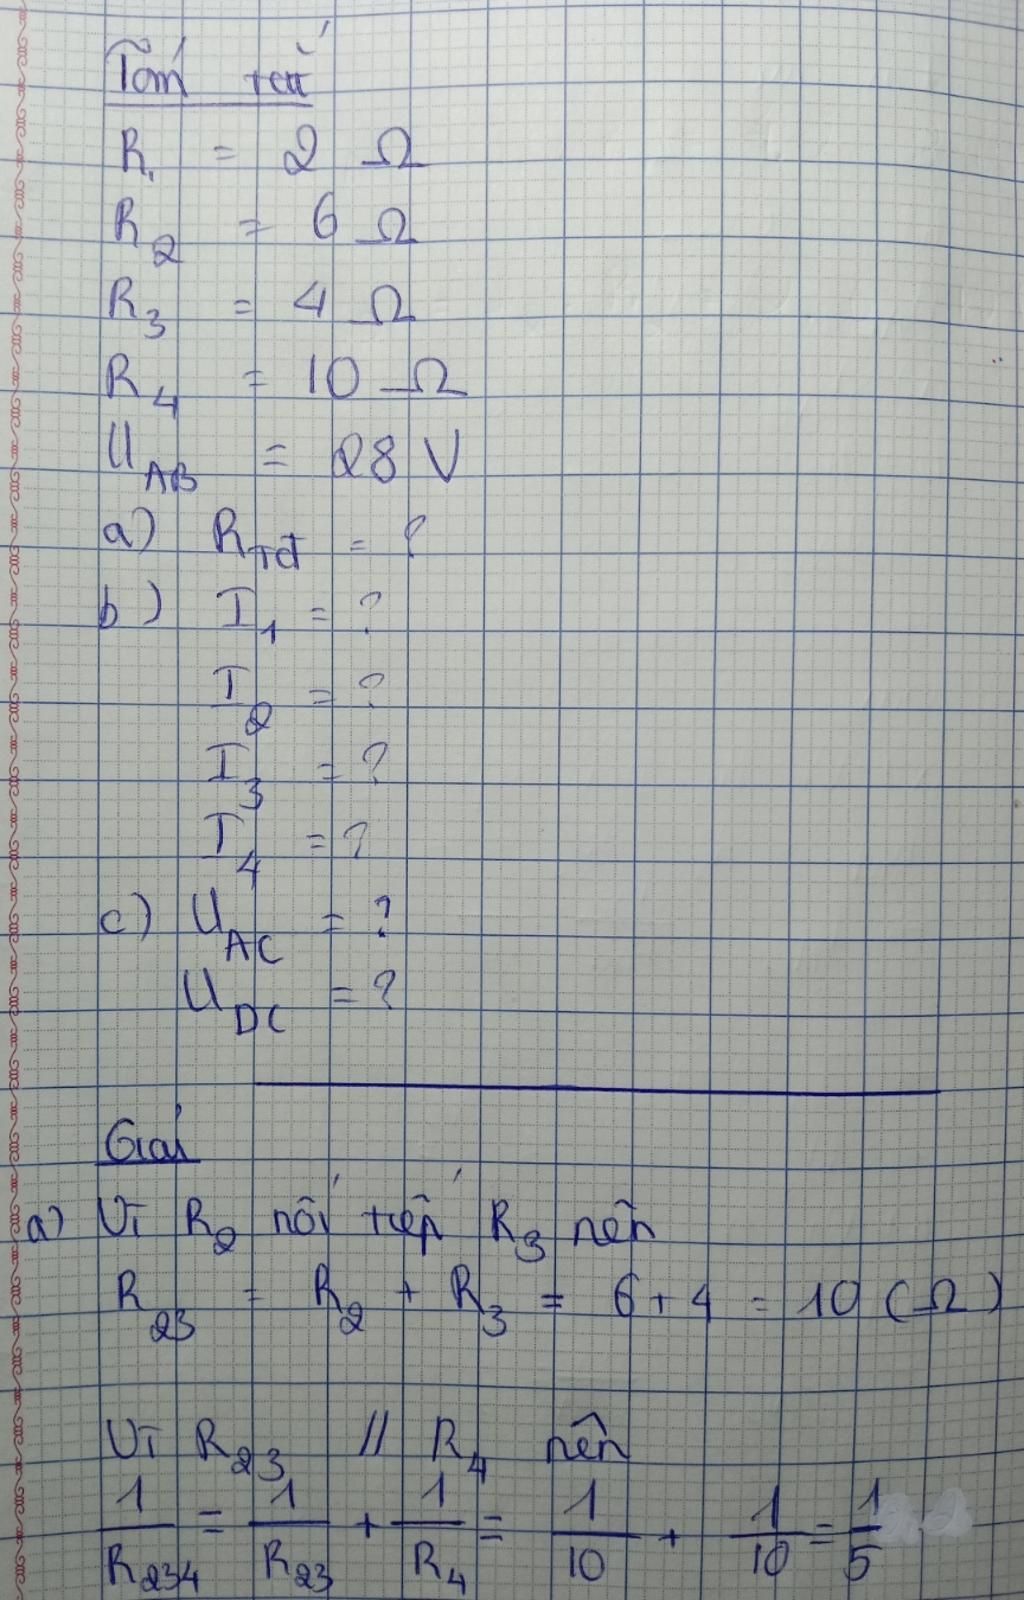 Tóm tắt
R₁ = 2 Ω
R₂ = 6 Ω
R₃ = 4 Ω
R₄ = 10 Ω
U_AB = 28 V
a) R_Tđ = ?
b) I₁ = ?
I₂ = ?
I₃ = ?
I₄ = ?
c) U_AC = ?
U_DC = ?
Giải
a) Vì R₂ nối tiếp R₃ nên
R₂₃ = R₂ + R₃ = 6 + 4 = 10 (Ω)
Vì R₂₃ // R₄ nên
1/R₂₃₄ = 1/R₂₃ + 1/R₄ = 1/10 + 1/10 = 1/5